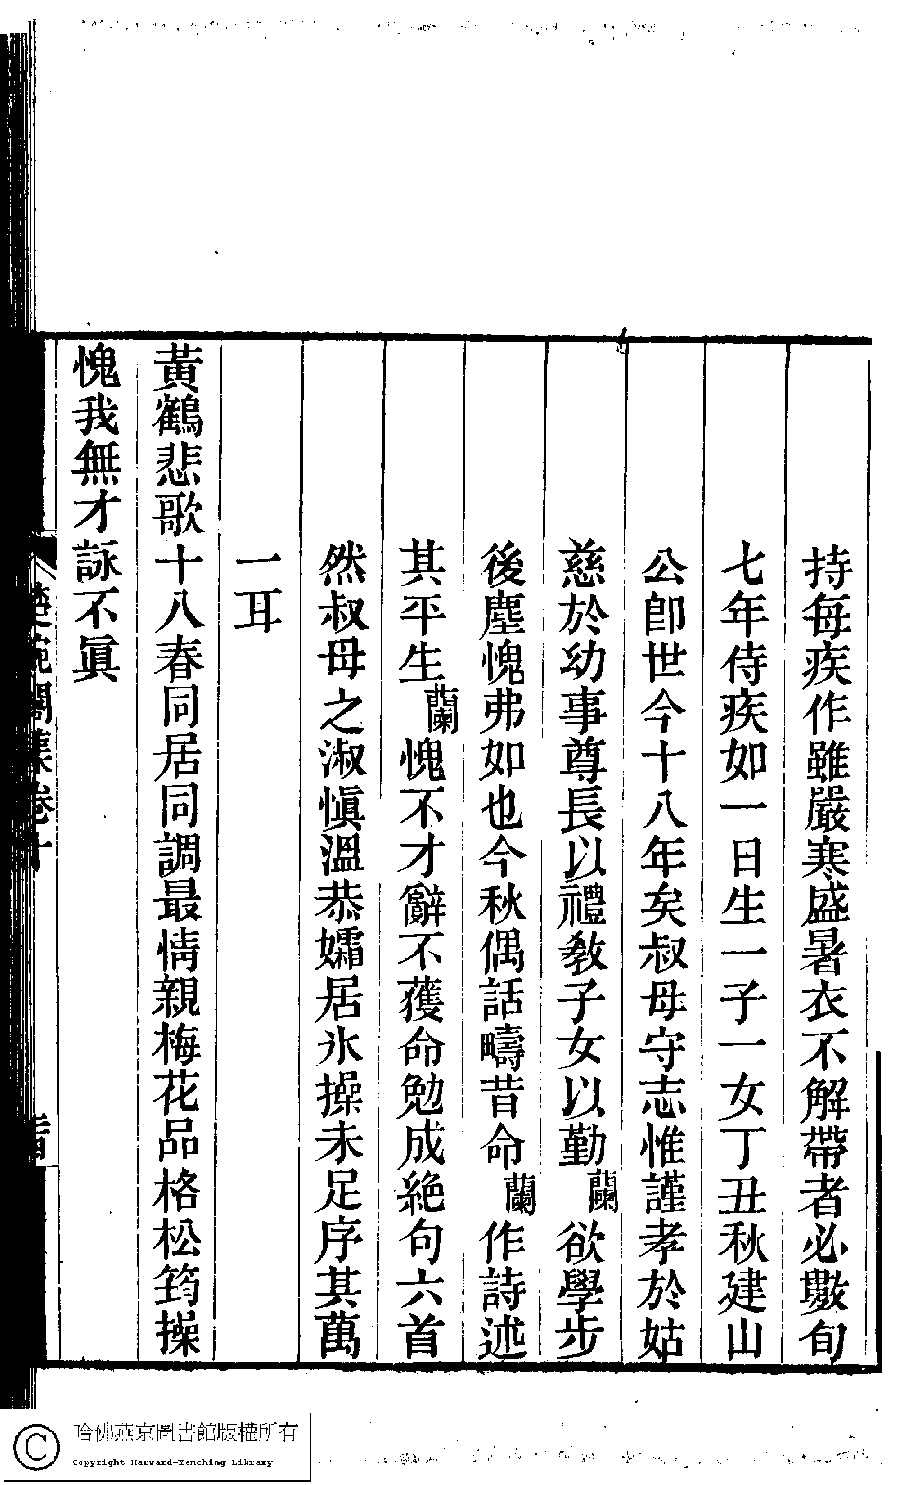 持每疾作雖嚴寒盛暑衣不解帶者必數旬
七年侍疾如一日生一子一女丁丑秋建山
公卽世今十八年矣叔母守志惟謹孝於姑
慈於幼事尊長以禮教子女以勤蘭欲學步
後塵愧弗如也今秋偶話疇昔命蘭作詩述
其平生蘭愧不才辭不獲命勉成絶句六首
然叔母之淑愼溫恭孀居氷操未足序其萬
一耳
黃鶴悲歌十八春同居同調最情親梅花品格松筠操
愧我無才詠不眞
哈佛燕京圖書館版權所有
Copyright Harvard-Yenching Library